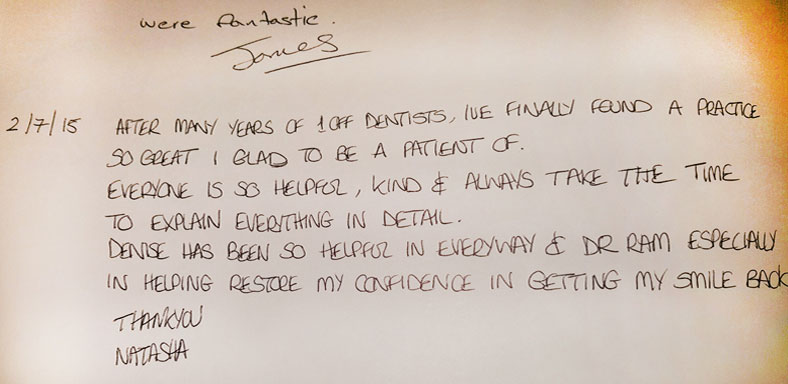 were fantastic.
James
2/7/15 AFTER MANY YEARS OF 1 OFF DENTISTS, IVE FINALLY FOUND A PRACTICE
SO GREAT I GLAD TO BE A PATIENT OF.
EVERYONE IS SO HELPFUL, KIND & ALWAYS TAKE THE TIME
TO EXPLAIN EVERYTHING IN DETAIL.
DENISE HAS BEEN SO HELPFUL IN EVERYWAY & DR RAM ESPECIALLY
IN HELPING RESTORE MY CONFIDENCE IN GETTING MY SMILE BACK
THANKYOU
NATASHA